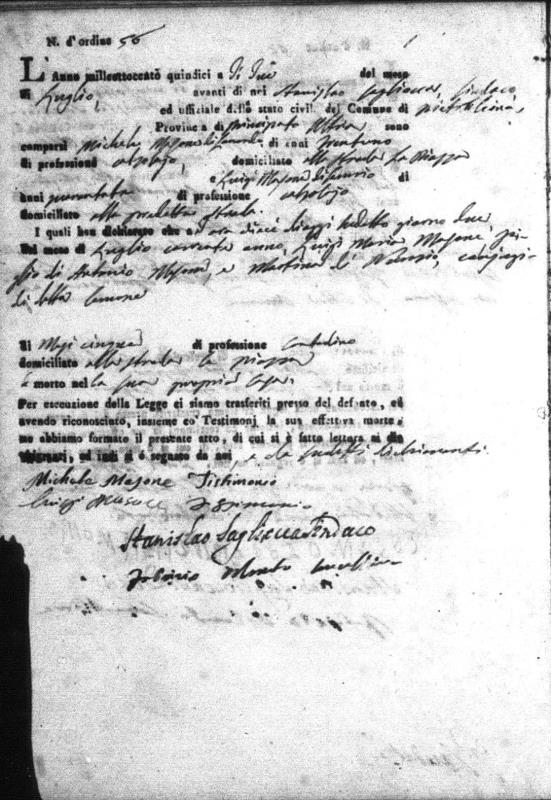 N. d'ordine 56
L'Anno millesettocento quindici a di due del mese
di Luglio, avanti di noi Stanislao Sagliocca, Sindaco
ed uffiziale dello stato civil. del Comune di Pietrelcina,
Provinca di Principato Ultra, sono
comparsi Michele Masone di Carmela di anni trentuno
di professione domiciliato alla strada la Piazza
e Luigi Masone di di
anni quaranta di professione
domiciliato alla predetta strada.
I quali han dichiarato che a ora dieci giorno due
Del mese di Luglio corrente anno, Luigi Maria Masone fi-
glio di Antonio Masone, e Martina conjugi
di detta comune
di Mesi cinque di professione Contadino
domiciliato alla strada la piazza
è morto nella sua propria Casa.
Per esecuzione della Legge ci siamo trasferiti presso del defunto, ed
avendo riconosciuto, insieme co' Testimonj la sua effettiva morte,
ne abbiamo formato il presente atto, di cui si è fatto lettura ai di-
chiaranti, ed indi si è segnato da noi, e da sudetti dichiaranti.
Michele Masone Testimonio
Luigi Masone Testimonio
Stanislao Sagliocca Sindaco